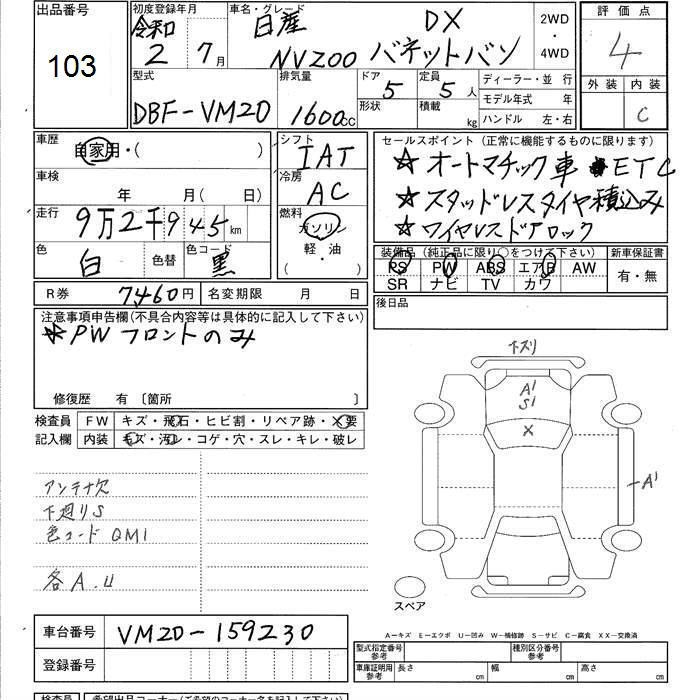 出品番号
103
初度登録年月
令和
2 7月
車名・グレード
日産 DX
NV200 バネットバン
2WD
・
4WD
評価点
4
外装 内装
C
型式
DBF-VM20
排気量
1600cc
ドア
5
定員
5人
形状
積載
kg
ディーラー・並 行
モデル年式 年
ハンドル 左・右
車歴
自家用・( )
車検
年 月( 日)
走行
9万2千945km
色
白
色替
色コード
黒
シフト
IAT
冷房
AC
燃料
ガソリン
軽・油
( )
セールスポイント(正常に機能するものに限ります)
☆オートマチック車 ETC
☆スタッドレスタイヤ積込み
☆ワイヤレスドアロック
装備品(純正品に限り○をつけて下さい)
PS PW ABS エアB AW
SR ナビ TV カワ
新車保証書
有・無
R券 7460円
名変期限 月 日
後日品
注意事項申告欄(不具合内容等は具体的に記入して下さい)
☆PWフロントのみ
修復歴 有〔箇所 〕
検査員
記入欄
FW キズ・飛石・ヒビ割・リペア跡・×要
内装 キズ・汚レ・コゲ・穴・スレ・キレ・破レ
アンテナ欠
下廻りS
色コード QM1
各A.U
下ズリ
A1
S1
×
A1
スペア
車台番号 VM20-159230
登録番号
A―キズ E―エクボ U―凹み W―補修跡 S―サビ C―腐食 XX―交換済
型式指定番号
参考
種別区分番号
参考
車庫証明用
参考
長さ cm
幅 cm
高さ cm
検査員
希望出品コーナー(ご希望のコーナー名を記入して下さい)